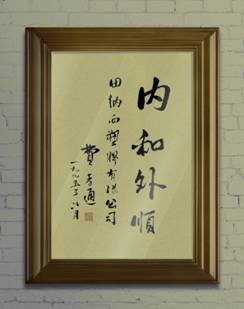 内和外順
田納西塑膠有限公司
費孝通
一九九五年八月